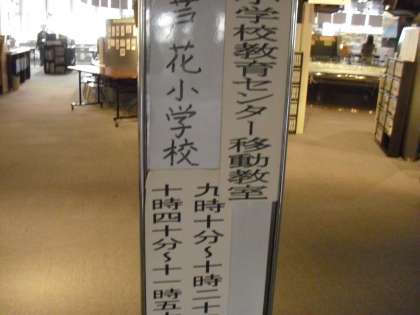 小学校教育センター移動教室
芦花小学校
九時十分〜十時二十
十時四十分〜十一時五十